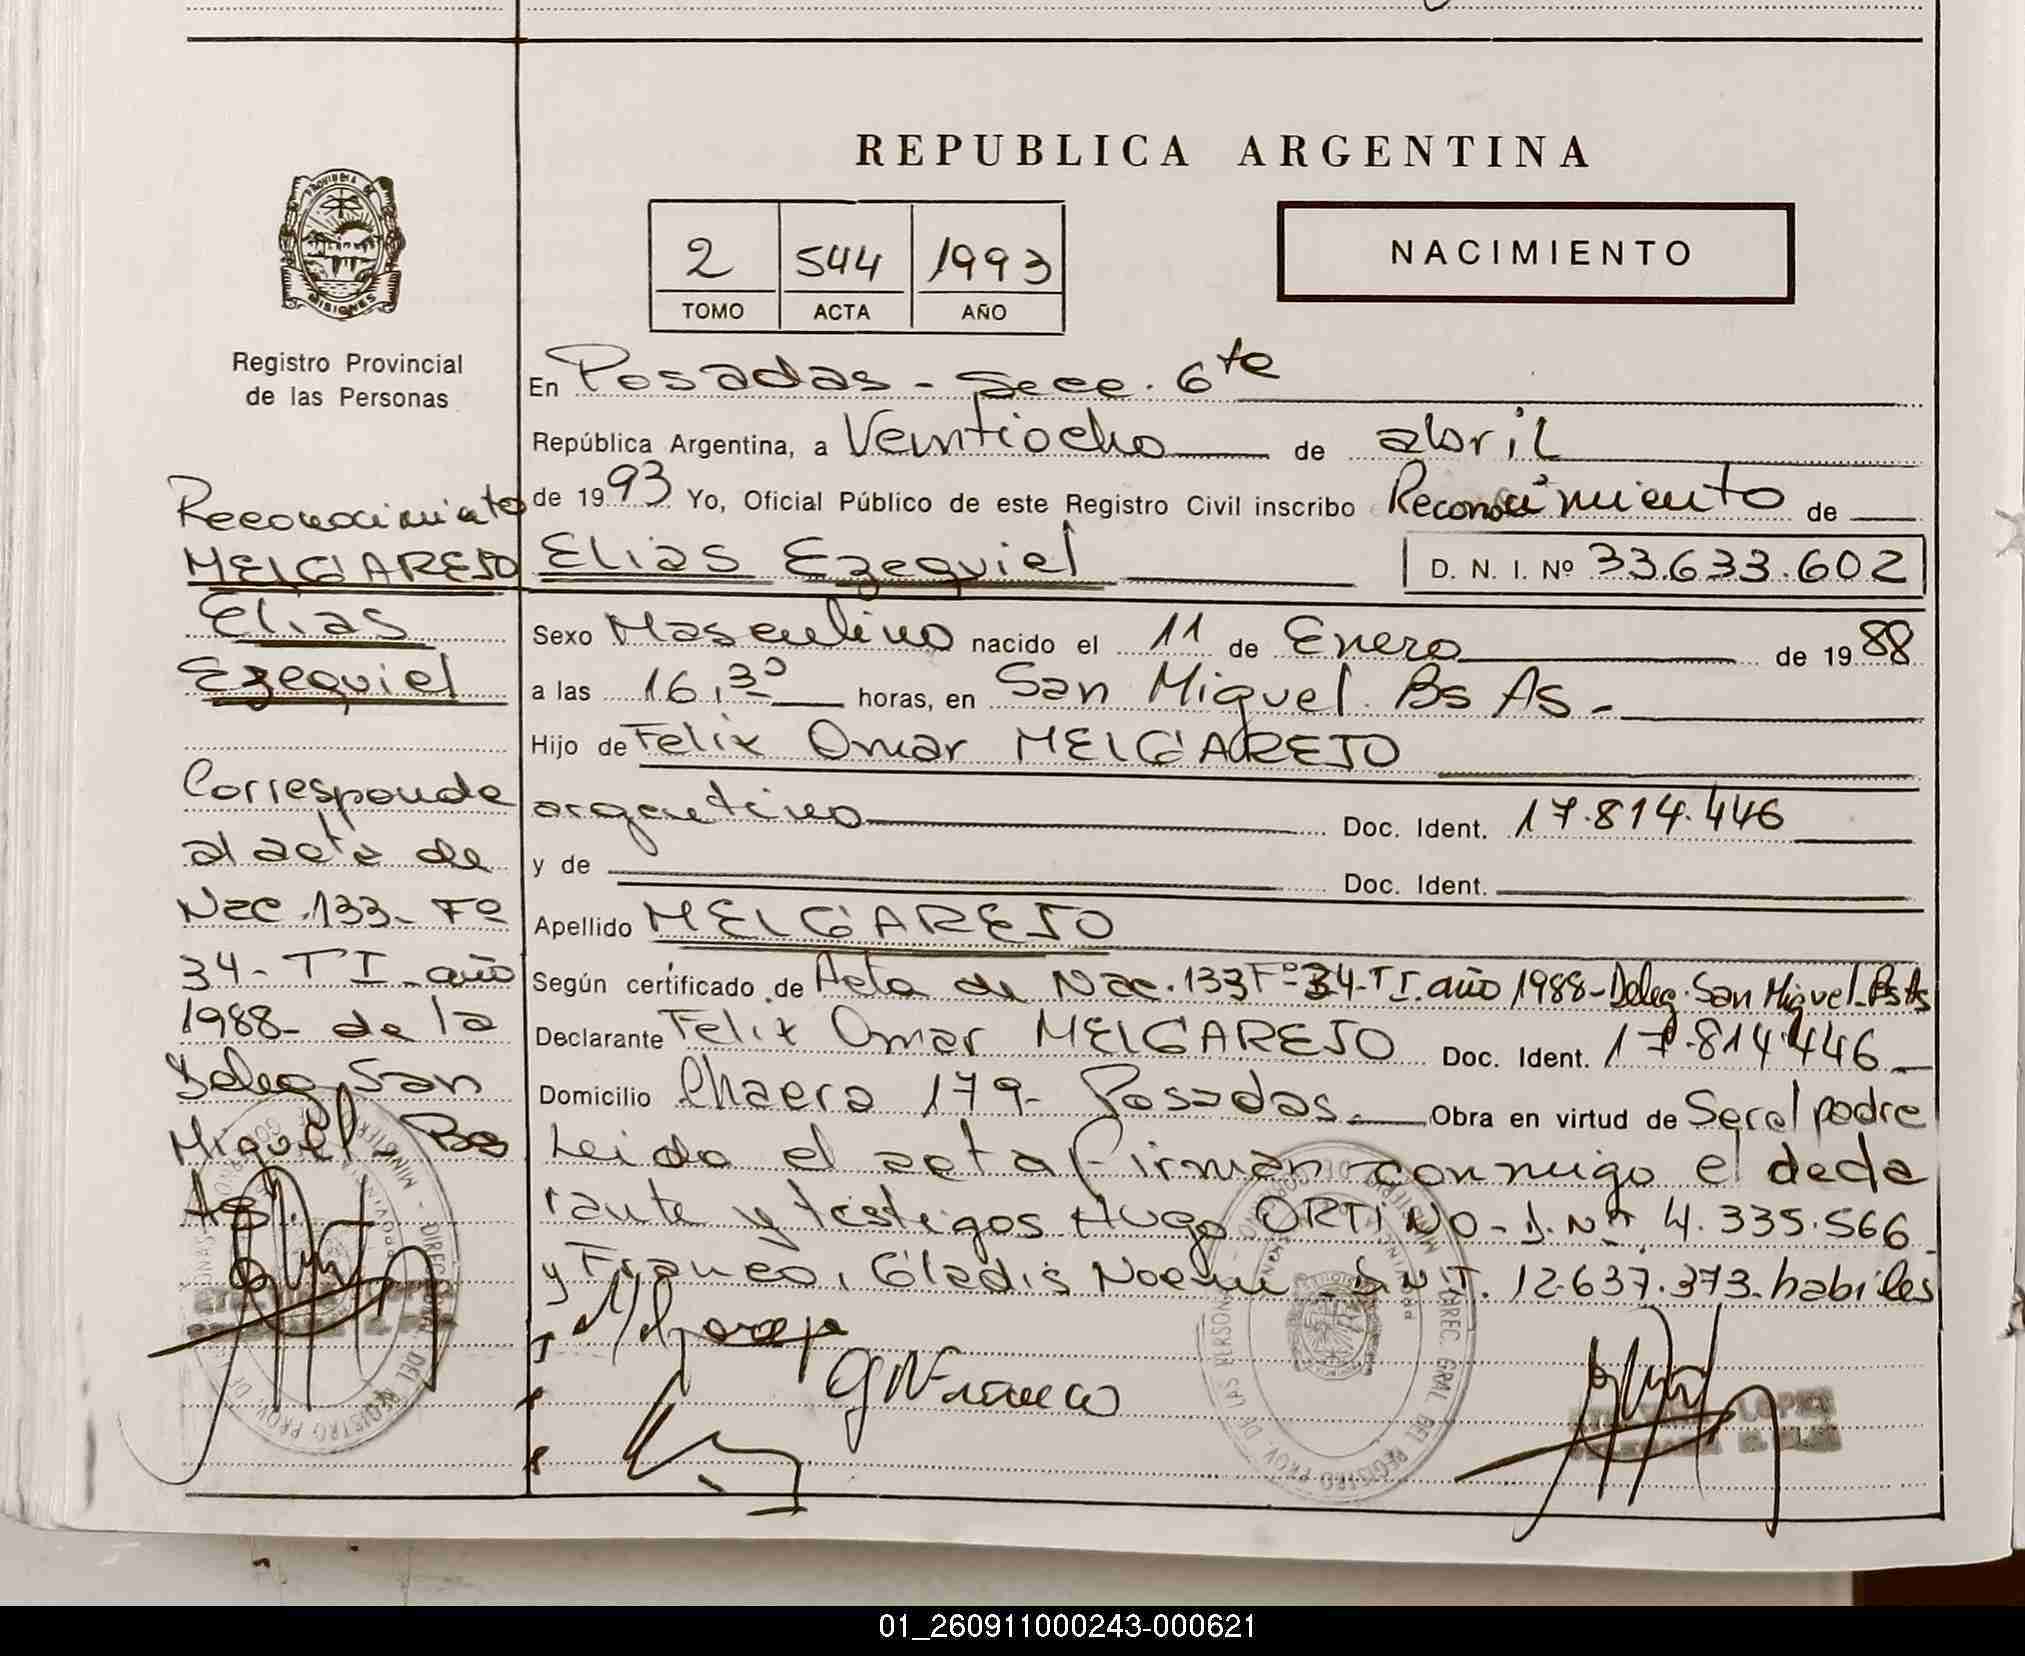 REPUBLICA ARGENTINA
PROVINCIA DE
MISIONES
Registro Provincial
de las Personas
2 544 1993
TOMO ACTA AÑO
NACIMIENTO
En Posadas - Secc. 6ta
República Argentina, a Veintiocho de abril
de 1993 Yo, Oficial Público de este Registro Civil inscribo Reconocimiento de
Elias Ezequiel D. N. I. Nº 33.633.602
Sexo Masculino nacido el 11 de Enero de 1988
a las 16,30 horas, en San Miguel. Bs As -
Hijo de Felix Omar MELGAREJO
argentino Doc. Ident. 17.814.446
y de Doc. Ident.
Apellido MELGAREJO
Según certificado de Acta de Nac. 133 Fº 34-T I. año 1988-Deleg. San Miguel-Bs As
Declarante Felix Omar MELGAREJO Doc. Ident. 17.814.446
Domicilio Chacra 179- Posadas. Obra en virtud de Ser el padre
Leida el acta firman conmigo el decla
rante y testigos Hugo ORTINO - D.Nº 4.335.566
y Franco, Gladis Noemi - D.N.I. 12.637.373. habiles
Melgarejo
GNFranco
Reconocimiento
MELGAREJO
Elias
Ezequiel
Corresponde
al acta de
Nac. 133- Fº
34- T I- año
1988- de la
Deleg. San
Miguel- Bs
As.
01_260911000243-000621